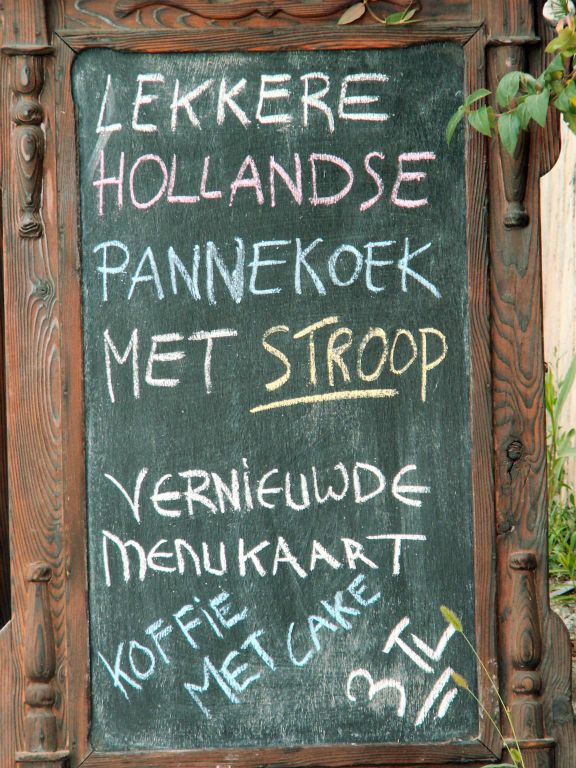 LEKKERE
HOLLANDSE
PANNEKOEK
MET STROOP
VERNIEUWDE
MENUKAART
KOFFIE
MET CAKE
3 TL